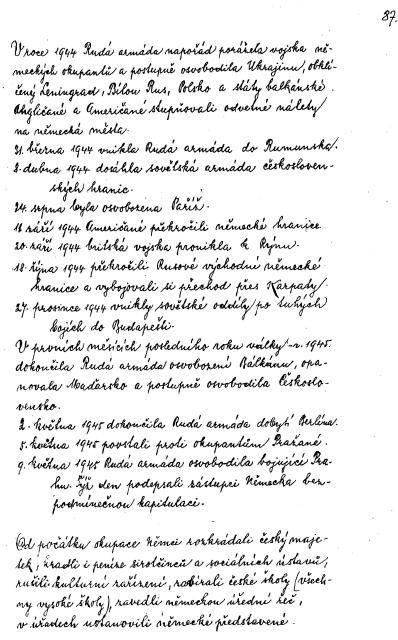 87.
V roce 1944 Rudá armáda napořád porážela vojska ně-
meckých okupantů a postupně osvobodila Ukrajinu, oblklí-
čený Leningrad, Bílou Rus, Polsko a státy balkánské.
Angličané a Američané stupňovali odvetné nálety
na německá města.
31. března 1944 vnikla Rudá armáda do Rumunska.
2. dubna 1944 dosáhla sovětská armáda českosloven-
ských hranic.
24. srpna byla osvobozena Paříž.
12. září 1944 Američané překročili německé hranice
20. září 1944 britská vojska pronikla k Rýnu.
18. října 1944 překročili Rusové východně německé
hranice a vybojovali si přechod přes Karpaty.
27. prosince 1944 vnikly sovětské oddíly po tuhých
bojích do Budapešti.
V prvních měsících posledního roku války - r. 1945.
dokončila Rudá armáda osvobození Balkánu, opa-
novala Maďarsko a postupně osvobodila Českoslo-
vensko.
2. května 1945 dokončila Rudá armáda dobytí Berlína.
5. května 1945 povstali proti okupantům Pražané.
9. května 1945 Rudá armáda osvobodila bojující Pra-
hu. Týž den podepsali zástupci Německa bez-
podmínečnou kapitulaci.
Od počátku okupace Němci rozkrádali český maje-
tek, kradli i peníze sirotčinců a sociálních ústavů,
rušili kulturní zařízení, zabírali české školy (všech-
ny vysoké školy), zavedli německou úřední řeč,
v úřadech ustanovili německé představené.